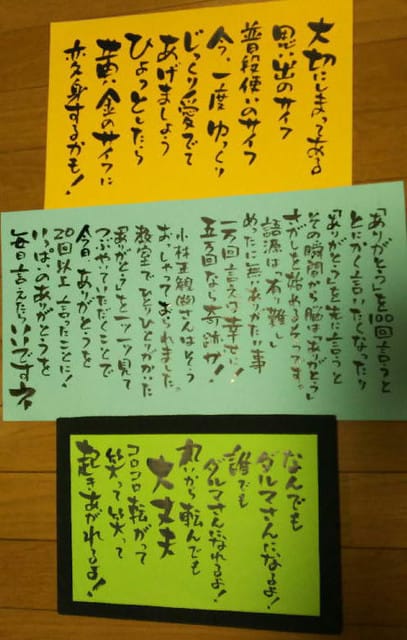 大切にしまってある
思い出のサイフ
普段使いのサイフ
今、一度ゆっくり
じっくり愛でて
あげましょう
ひょっとしたら
黄金のサイフに
変身するかも!
「ありがとう」を100回言うと
とにかく言いたくなったり
「ありがとう」を先に言うと
その瞬間から脳はありがとう
さがしを始めるそうです。
語源は「有り難し」
めったに無いありがたい事
一万回言えば幸せに!
五万回なら奇跡が!
小林正観さんはそう
おっしゃっておられました。
教室でひとりひとりがかいた
ありがとうを一ツ一ツ見て
つぶやいていただくことで
今日、ありがとうを
20回以上言ったことに!
いっぱいのありがとうを
毎日言えたらいいですネ
なんでも
ダルマさんになるよ!
誰でも
ダルマさんになれるよ!
丸いから転んでも
大丈夫
コロコロ転がって
笑って笑って
起きあがれるよ!